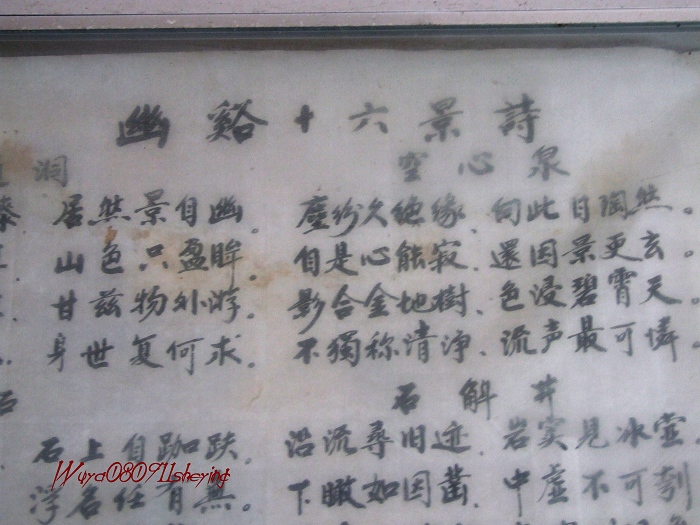 幽谿十六景詩
洞
居然景自幽。
山色只盈眸。
甘兹物外游。
身世复何求。
石
石上自跏趺.
浮名任有無。
空心泉
塵紛久绝缘、向此日陶然。
自是心能寂、還因景更玄。
影合金地樹、色浸碧霄天
不獨称清净、流声最可憐。
石斛井
沿流尋旧迹、岩实见冰壶
下瞰如因凿、中虚不可刳
Wuya080911sheying